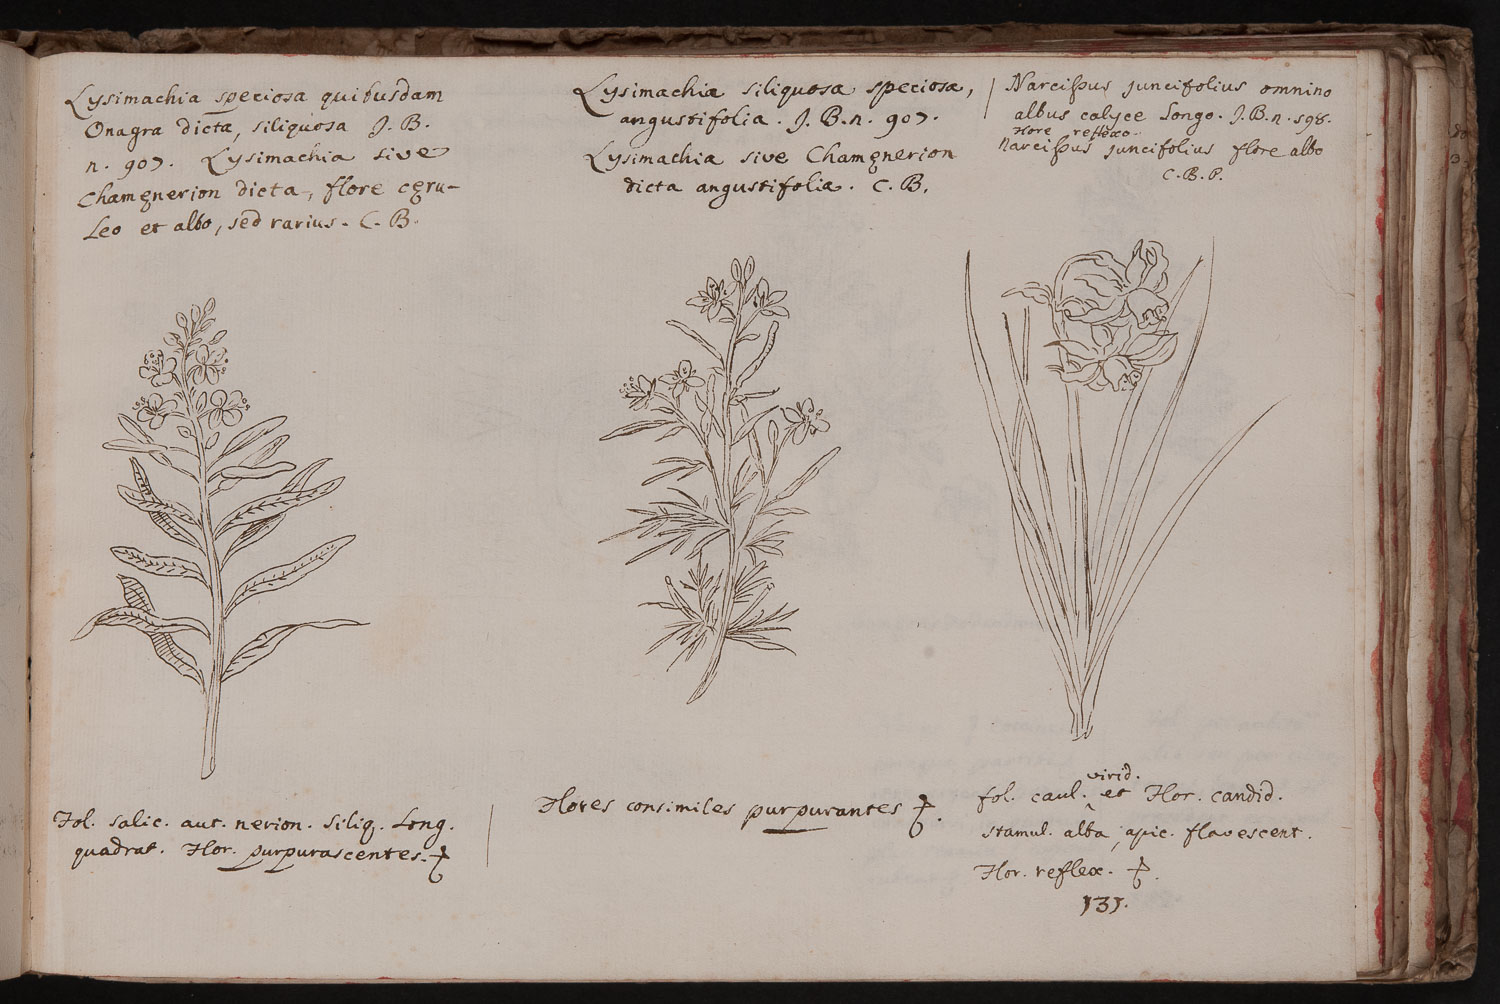 Lysimachia speciosa quibusdam
Onagra dicta, siliquosa J. B.
n. 907. Lysimachia sive
Chamęnerion dicta, flore cęru-
leo et albo, sed rarius. C. B.
Lysimachia siliquosa speciosa,
angustifolia. J. B. n. 907.
Lysimachia sive Chamęnerion
dicta angustifolia. C. B.
Narcissus juncifolius omnino
albus calyce longo. J. B. n. 598.
flore reflexo.
Narcissus juncifolius flore albo
C. B. P.
Fol. salic. aut. nerion. siliq. long.
quadrat. Flor. purpurascentes.
Flores consimiles purpurantes
virid.
fol. caul. et Flor. candid.
stamul. alba, apic. flavescent.
Flor. reflex.
131.